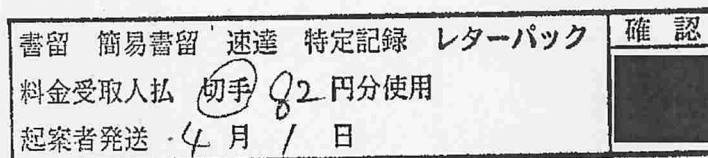 書留 簡易書留 速達 特定記録 レターパック 確認
料金受取人払 切手 82円分使用
起案者発送 4月1日